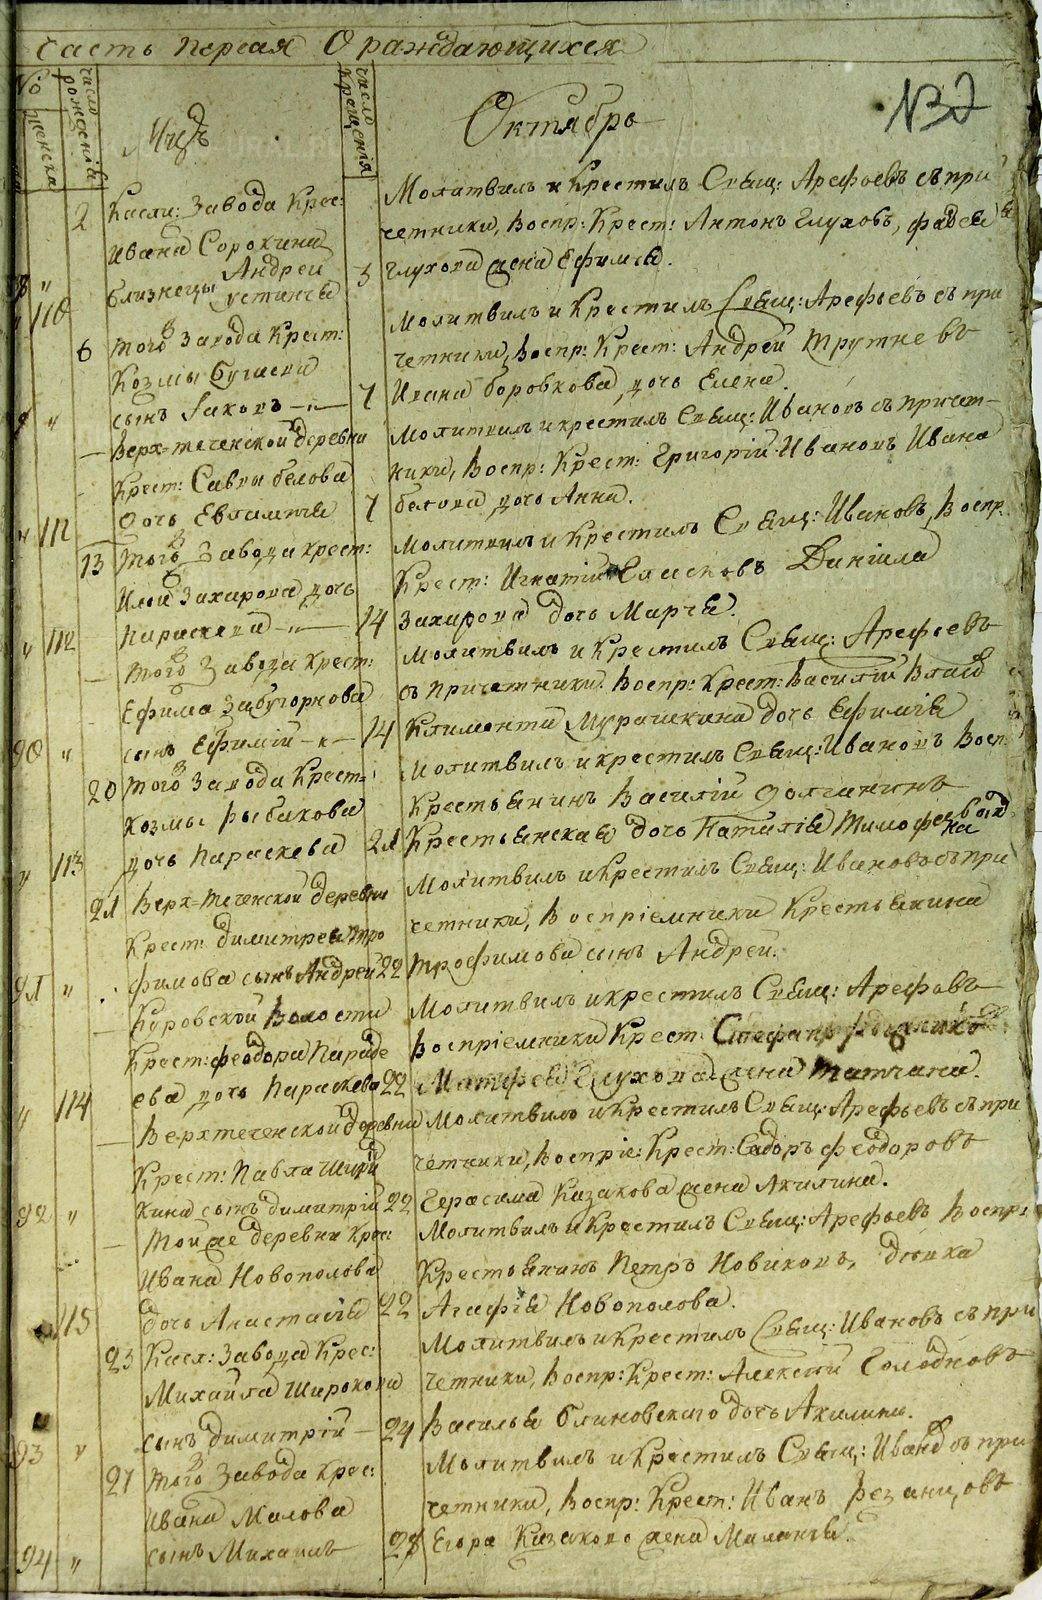 Часть первая О раждающихся
№ 
число рожденія
женска
Число Крещенія
Октябрь
132
2 Касли: Завода Крес:
Ивана Сорокина
близнецы Андрей
Устинья 3
110
Молитвилъ и Крестилъ Свящ: Арефьевъ съ при
четники, Воспр: Крест: Антонъ Глуховъ, Фадея
Глухова жена Ефимья.
6 того Завода Крест:
Козмы Бугаева
сынъ Іаковъ 7
Молитвилъ и Крестилъ Свящ: Арефьевъ съ при
четники, Воспр: Крест: Андрей Трутневъ
Ивана Боровкова дочь Елена.
Верх-теченской деревни
Крест: Савы белова
дочь Евлампія 7
Молитвилъ и крестилъ Свящ: Ивановъ съ причет-
ники, Воспр: Крест: Григорій Ивановъ Ивана
белова дочь Анна.
13 того Завода Крест:
Ильи Захарова дочь
Параскева 14
112
Молитвилъ и Крестилъ Свящ: Ивановъ, Воспр.
Крест: Игнатій Даніила
Захарова дочь Марѳа.
того Завода Крест:
Ефима Забугорнова
сынъ Ефимій 14
90
Молитвилъ и Крестилъ Свящ: Арефьевъ
съ причетники. Воспр: Крест: Василій
Климонта Мурашкина дочь Ефимія
20 того Завода Крест:
Козмы Рыбакова
дочь Параскева 21
113
Молитвилъ и крестилъ Свящ: Ивановъ Восп:
Крестьянинъ Василій Долганинъ
Крестьянская дочь Наталія Тимофеева
21 Верх-Теченской деревни
Крест: Димитрея Тро
фимова сынъ Андрей 22
91
Молитвилъ и Крестилъ Свящ: Ивановъ съ при
четники, Воспріемники Крестьянина
Трофимова сынъ Андрей.
Куровской Волости
Крест: Феодора Параде
ева дочь Параскева 22
114
Молитвилъ и крестилъ Свящ: Арефьевъ
Воспріемники Крест:
Матфея Глухова жена Татіана.
Верхтеченской деревни
Крест: Павла Ширя
кина сынъ Димитрій 22
92
Молитвилъ и Крестилъ Свящ: Арефьевъ съ при
четники, Воспріе: Крест: Сидоръ Феодоровъ
Герасима Казакова жена Акилина.
Той же деревни Крес:
Ивана Новополова
дочь Анастасія 22
115
Молитвилъ и Крестилъ Свящ: Арефьевъ Воспр:
Крестьянинъ Петръ Новиковъ, девка
Агафія Новополова.
23 Касл: Завода Крес:
Михайла Широкова
сынъ Димитрій 24
93
Молитвилъ и Крестилъ Свящ: Ивановъ съ при
четники, Воспр: Крест: Алексій Голодновъ
Василья Блиновскаго дочь Акилина.
27 того Завода Крес:
Ивана Малова
сынъ Михаилъ 28
94
Молитвилъ и Крестилъ Свящ: Ивановъ съ при
четники, Воспр: Крест: Иванъ Резанцовъ
Егора Казакова жена Маланья.